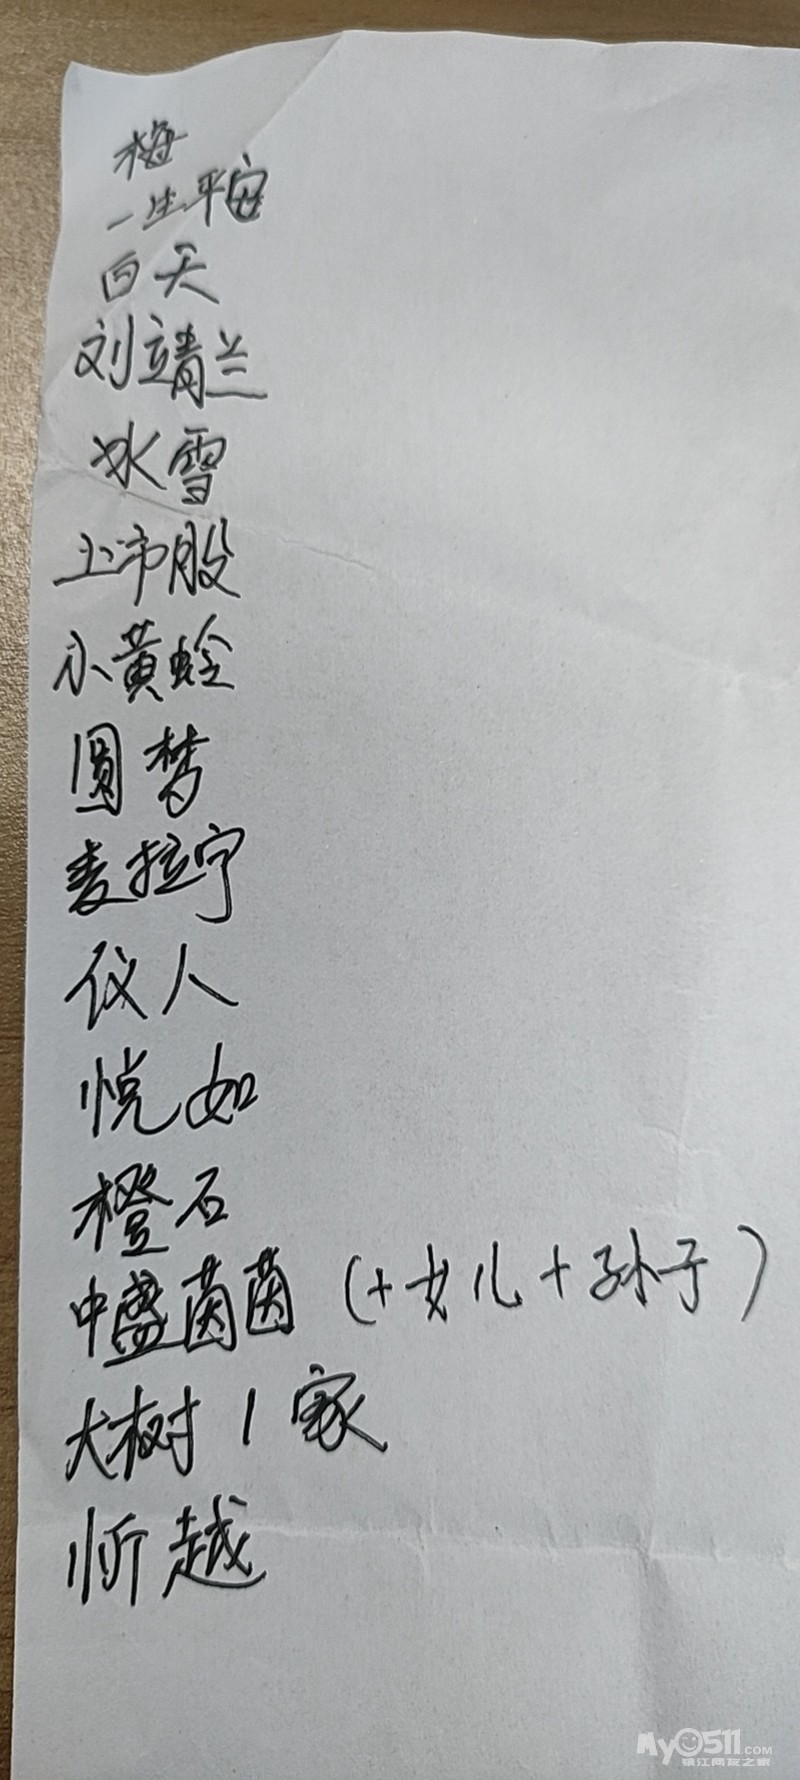 梅
一生平安
白天
刘靖兰
冰雪
上市股
小黄蛉
圆梦
麦拉宁
仪人
悦如
橙石
中盛茵茵（+女儿+孙子）
大树1家
忻越
My0511.COM
镇江网友之家